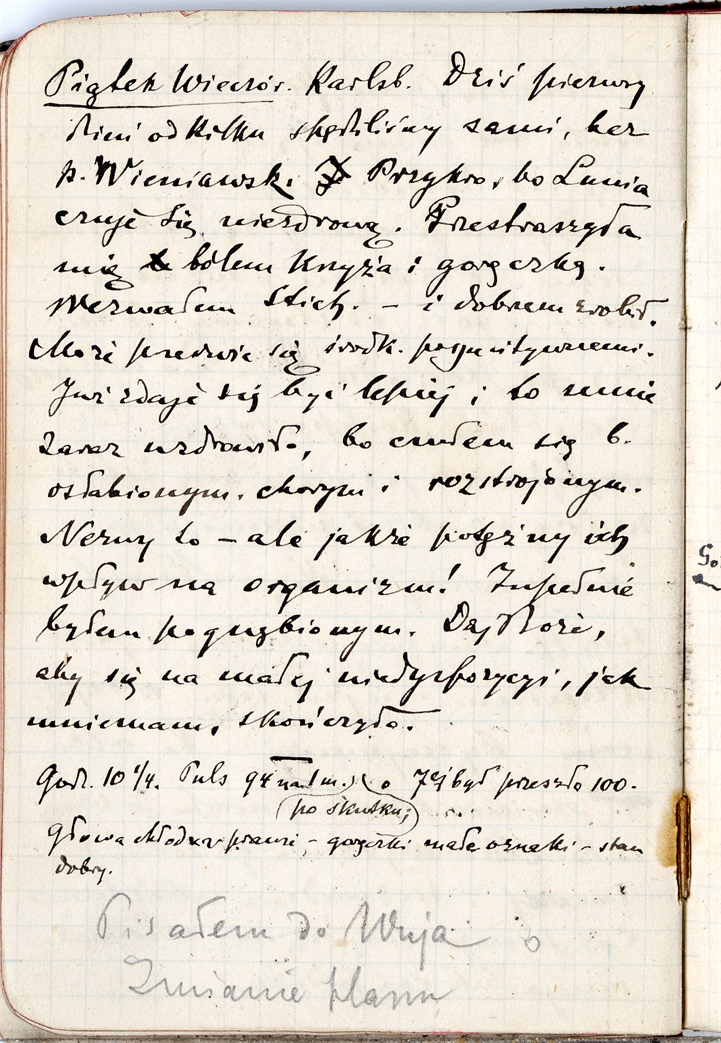 Piątek Wieczór. Karlsb. Dziś pierwszy
dzień od kilku spędziliśmy sami, bez
p. Wieniawsk. Przykro, bo Lunia
czuje się niezdrową. Przestraszyła
mię bólem Krzyża i gorączką.
Wezwałem Stich. – i dobrem zrobił.
Może przerwie się środk.
Już zdaje się być lepiej i to mnie
zaraz uzdrowiło, bo czułem się b.
osłabionym, chorym i rozstrojonym.
Nerwy to – ale jakże potężny ich
wpływ na organizm! Zupełnie
byłem pognębionym. Daj Boże,
aby się na małej niedyspozycyi, jak
mniemam, skończyło.
Godz. 10 1/4. Puls 94 o 7ej był przeszło 100.
po skutku;
Głowa chłodna prawie – gorączki małe oznaki – stan
dobry.
Pisałem do Wuja o
Zmianie planu